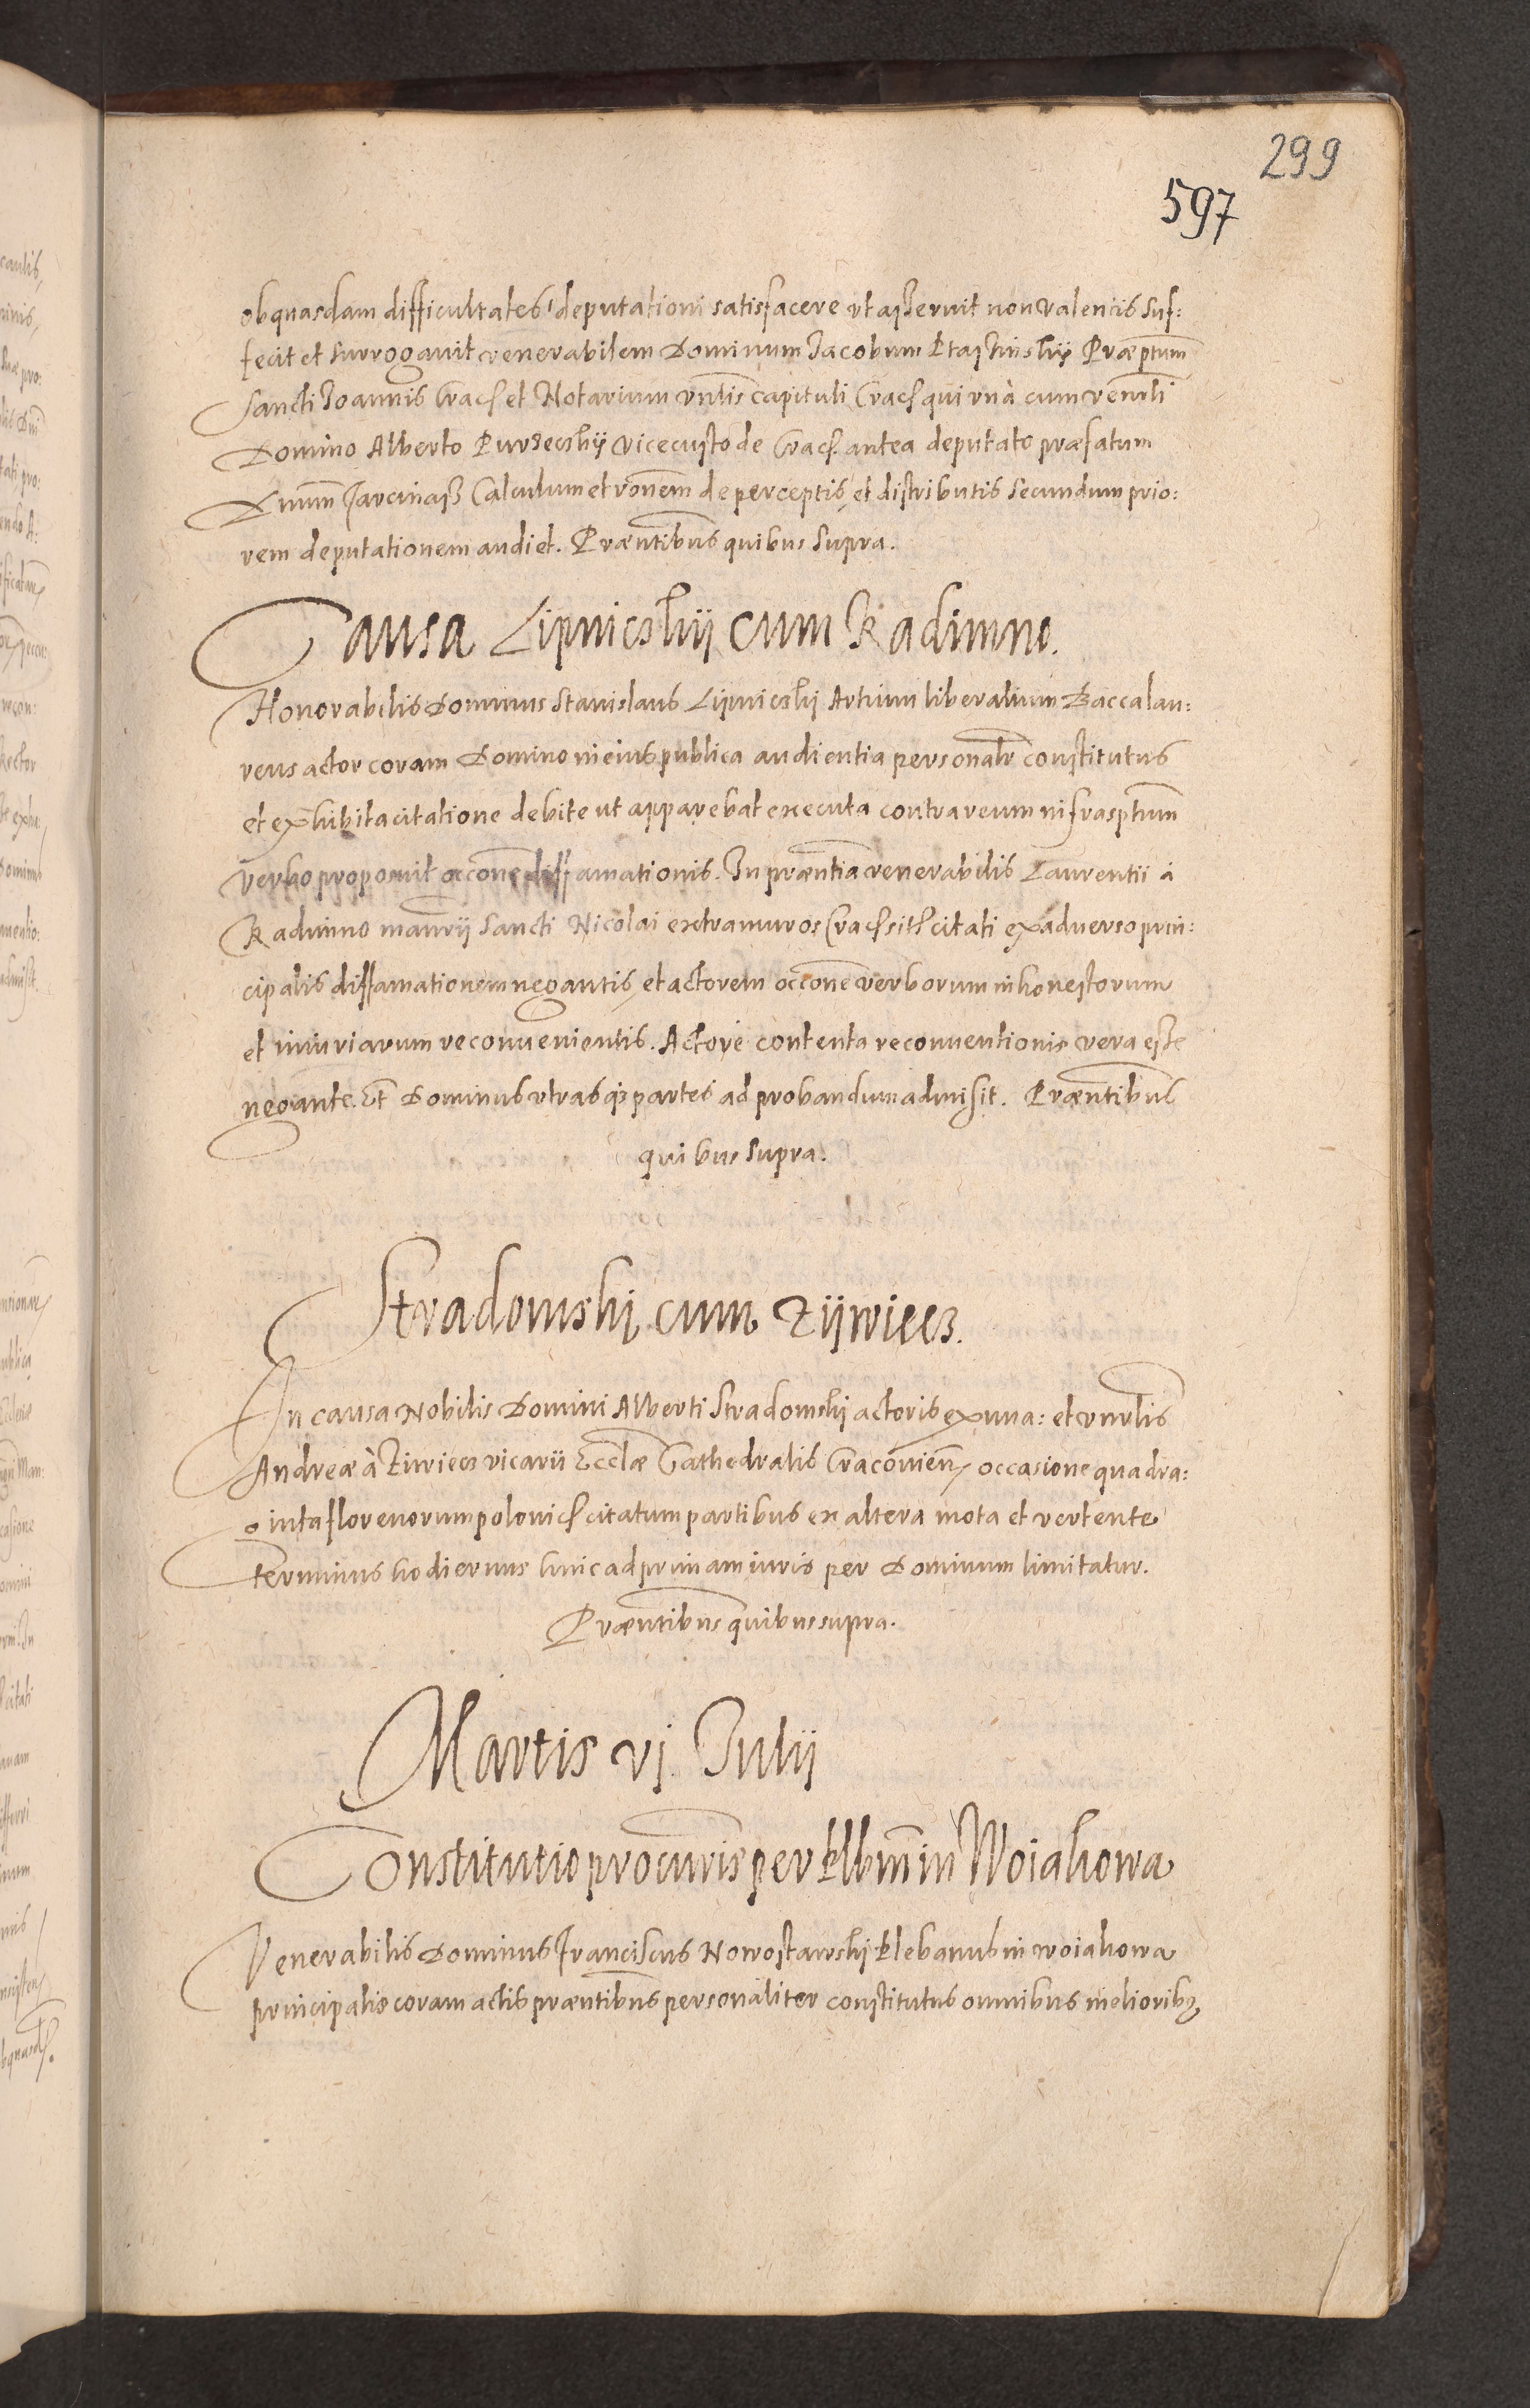 299
597
ob quasdam difficultates deputationi satisfacere ut asseruit non valentis suf:
fecit et surrogavit venerabilem Dominum Jacobum Ptaszinskij Præptum
Sancti Joannis Crac et Notarium vnlis capituli Crac qui vnà cum venrli
Domino Alberto Purzeczkij vicecustode Crac. antea deputato præfatum
Dnum Farcinasz Calculum et ronem de perceptis, et distributis secundum prio:
rem deputationem audiet. Præntibus quibus supra.
Causa Lipnicskij cum Radimno.
Honorabilis Dominus Stanislaus Lipnicskij Artium liberalium Baccalau:
reus actor coram Domino in eius publica audientia personalr constitutus
et exhibita citatione debite ut apparebat executa contra reum infrasptum
verbo proposuit occone diffamationis. In præntia venerabilis Laurentii à
Radimno manrij Sancti Nicolai extra muros Crac sitt citati ex adverso prin:
cipalis diffamationem negantis, et actorem occone verborum inhonestorum
et iniuriarum reconvenientis. Actore contenta reconventionis vera esse
negante. Et Dominus vtrasq partes ad probandum admisit. Præntibus
quibus supra.
Stradomski cum Zijwiecz.
In causa Nobilis Domini Alberti Stradomski actoris ex una: et vnrlis
Andreæ à Ziwiecz vicarii Ecclæ Cathedralis Cracovien, occasione quadra:
ginta florenorum polonic citatum partibus ex altera mota et vertente
terminus hodiernus hinc ad primam iuris per Dominum limitatur.
Præntibus quibus supra.
Martis vj. Julij
Constitutio procuris per klbnm in Woiakowa
Venerabilis Dominus Franciscus Nowostawski klebanus in woiakowa
principalis coram actis præntibus personaliter constitutus omnibus melioribq